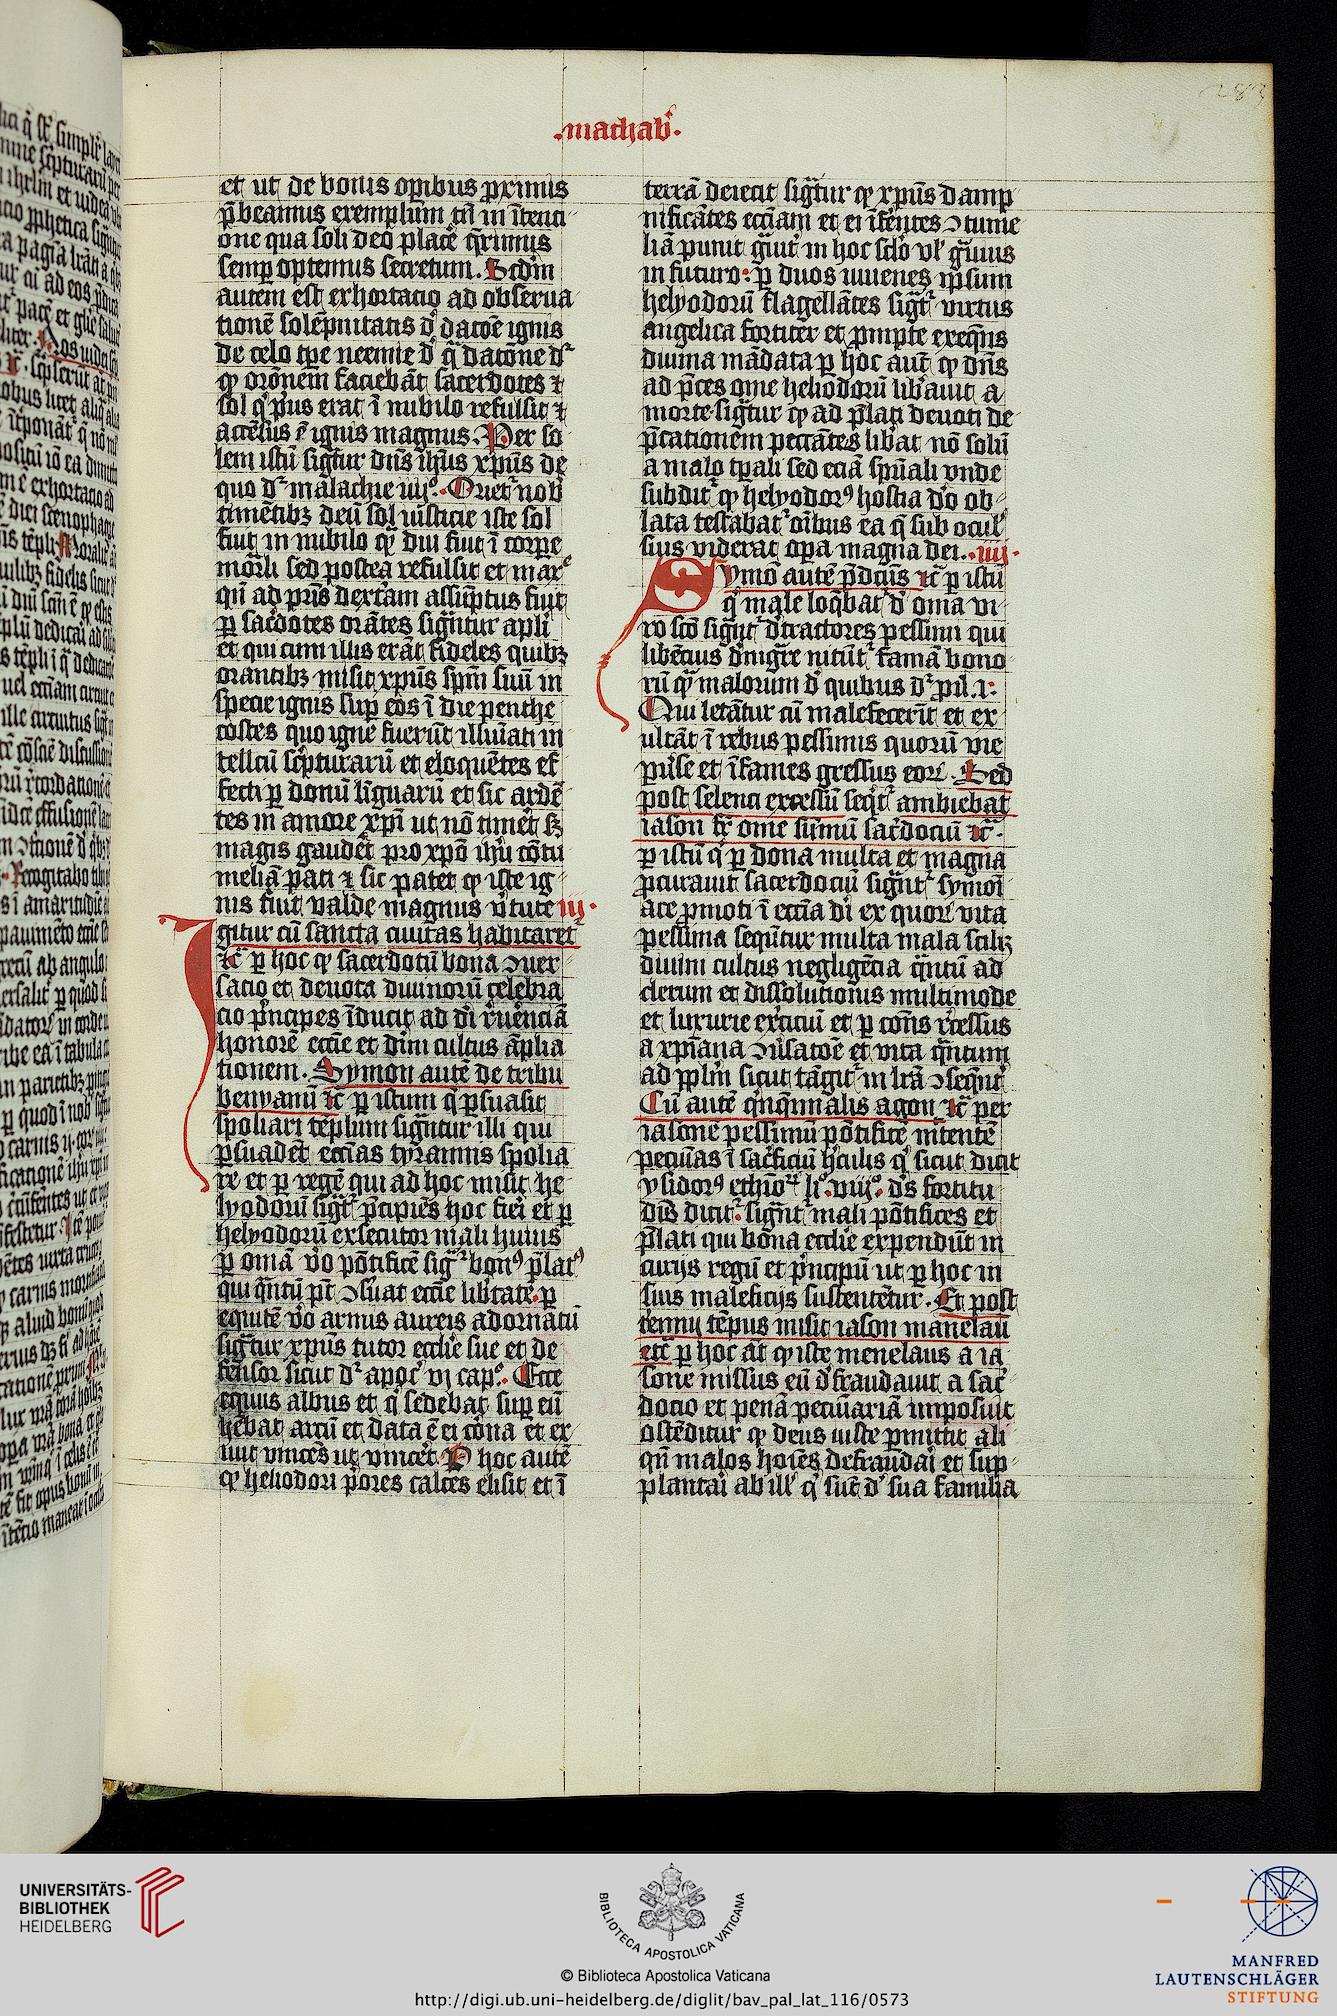 283
.machab.
et ut de bonis opibus proximis
p̄beamus exemplum tn̄ in ītenti-
one qua soli deo placē q̄rimus
semꝑ optemus secretum. Scdm̄
autem est exhortatio ad obserua-
tionē solēpnitatis d' datōe ignis
de celo tꝑe neemie d' q̄ datōne dr̄
ꝙ orōnem faciebāt sacerdotes ⁊
sol q' pus erat ī nubilo refulsit ⁊
accēsus ē ignis magnus. Per so
lem istū sigtur dn̄s ih̄us xpūs de
quo dr̄ malachie iiijº. Oriet' nob'
timētibꝫ deū sol iusticie iste sol
fuit in nubilo ꝙ diu fuit ī corꝑe
mor̄li sed postea refulsit et mar.º
qn̄ ad pr̄is dextram assūptus fuit
ꝑ sac̄dotes orātes sigītur apli
et qui cum illis erāt fideles quibꝫ
orantibꝫ misit xpūs spm̄ suū in
specie ignis suꝑ eos ī die penthe
costes quo igne fuerūt illuīati in
tellcū sc̄pturarū et eloquētes ef
fecti ꝑ donū līguarū et sic ardē
tes in amore xpi ut nō timēt sꝫ
magis gaudēt pro xpō ihū cōtu
meliā pati ⁊ sic patet ꝙ iste ig-
nis fuit valde magnus v̄tute iij.
Igitur cū sancta ciuitas habitaret
⁊c̄ ꝑ hoc ꝙ sacerdotū bona ↄuer
satio et deuota diuinorū celebra
cio p̄ncipes īducit ad dī r̄uenciā
honorē eccīe et diīni cultus āplia
tionem. Symon autē de tribu
benyamī ⁊c̄ ꝑ istum q̄ ꝑsuasit
spoliari tēplum sigītur illi qui
ꝑsuadēt eccīas tyrannis spolia
re et ꝑ regē qui ad hoc misit he
lyodorū sigt̄ p̄cipiēs hoc fieī et ꝑ
helyodorū exsecutor mali huius
ꝑ omā v̄o pōtificē sigr̄ bonꝰ p̄latꝰ
qui q̄ntū pt̄ ↄsuat eccīe libtatē. ꝑ
equitē v̄o armis aureis adornatū
sigtur xpūs tutor ecclīe sue et de
fensor sicut dr̄ apoc̄ vj capº. Ecce
equus albus et q' sedebat suꝑ eū
hēbat arcū et data ē ei cōna et ex
iuit vincēs ut vincēt. P hoc autē
ꝙ heliodori pores calces elisit et ī
terrā deiecit sigtur ꝙ xpūs damp
nificātes eccīam et ei īferētes ↄtume
liā punit ḡuit' in hoc sclo vl' ḡuius
in futuro. ꝑ duos iuuenes ipsum
helyodorū flagellātes sigt̄ virtus
angelica fortiter et prompte exeqn̄s
diuina mādata ꝑ hoc aut ꝙ dn̄s
ad p̄ces onie heliodorū libauit a
morte sigtur ꝙ ad p̄lati deuoti de
p̄cationem peccātes libat nō solū
a malo tꝑali sed eciā spūali vnde
subdit' ꝙ helyodorꝰ hostia dō ob-
lata testabat' oībus ea q̄ sub ocul'
suis viderat opa magna dei. iiij.
Symō autē p̄dcūs ⁊c̄ ꝑ istū
q' male loq̄bat' d' oma vi-
ro scō sigīt' d'tractores pessimi qui
libēcius d'nigre nitūt' famā bono
rū ꝙ malorum d' quibus dr̄ pū. 2.
Qui letātur cū malefecerīt et ex
ultāt ī rebus pessimis quorū vie
pūse et īfames gressus eor̄. Sed
post selenci excessū seqt' ambiebat
iason fr̄ onie sūmū sac̄dociū ⁊c̄.
ꝑ istū q' ꝑ dona multa et magna
ꝓcurauit sacerdociū sigīt' symoī
ace ꝓmoti ī eccīa dī ex quor̄ vita
pessima sequtur multa mala scilꝫ
diuini cultus negligētia q̄ntū ad
clerum et dissolutionis multimode
et luxurie ex̄ciciū et ꝑ cōns r̄cessus
a xpīana ↄūsatoē et vita q̄ntum
ad pplm̄ sicut tāgit' in lrā ↄseqn̄t'
Cū autē q'nq̄nnalis agon ⁊c̄ per
iasonē pessimū pōtificē mitentē
pecūias ī sac̄ficiū h'culis q' sicut dicit
ysidorꝰ ethioꝝ liº. viijº. d's fortitu
dīs dicit'. sigīt' mali pōtifices et
p̄lati qui bona ecclīe expendūt in
curijs regū et p̄ncipū ut ꝑ hoc in
suis maleficijs sustentētur. Et post
tennij tēpus misit iason manelaū
etc̄ ꝑ hoc āt ꝙ iste menelaus a ia
sone missus eū d'fraudauit a sac̄
docio et penā pecūariā imposuit
ostēditur ꝙ deus iuste ꝑmittit ali
qn̄ malos hoīes defraudaī et sup-
plantaī ab ill' q' sūt d' sua familia
UNIVERSITÄTS-
BIBLIOTHEK
HEIDELBERG
BIBLIOTECA APOSTOLICA VATICANA
© Biblioteca Apostolica Vaticana
http://digi.ub.uni-heidelberg.de/diglit/bav_pal_lat_116/0573
MANFRED
LAUTENSCHLÄGER
STIFTUNG